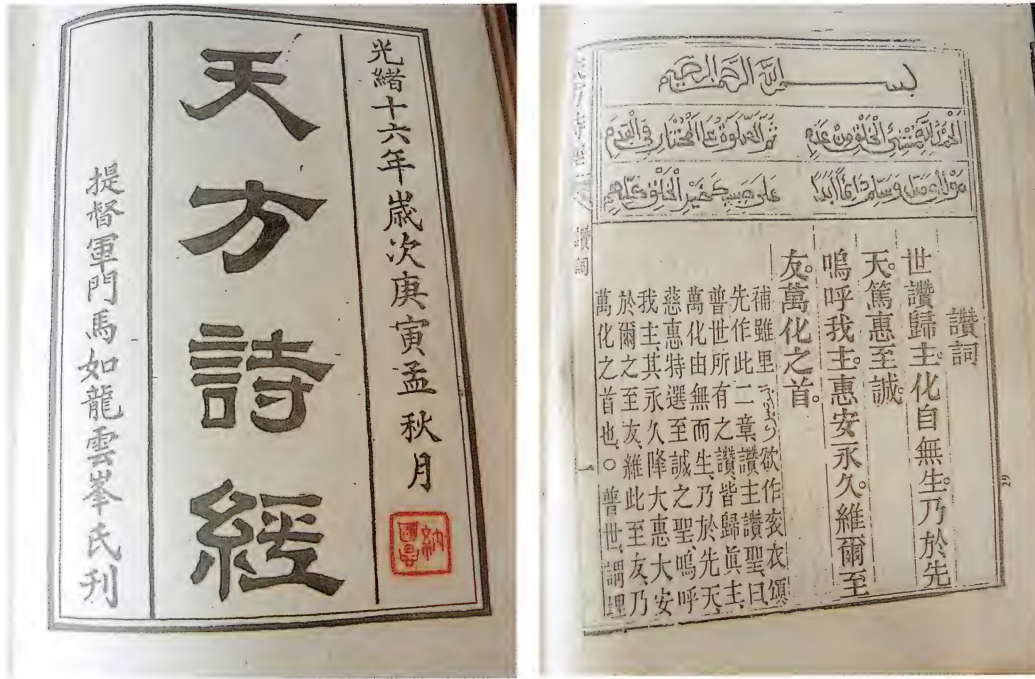 光緒十六年歲次庚寅孟秋月
納國昌
天方詩經
提督軍門馬如龍雲峯氏刊
بسم الله الرحمن الرحيم
الحمد لله منشئ الخلق من عدم ثم الصلوة على المختار في القدم
مولاي صل وسلم دائما ابدا على حبيبك خير الخلق كلهم
讚詞
世讚歸主。化自無生。乃於先
天。篤惠至誠。
嗚呼我主。惠安永久。維爾至
友。萬化之首。
補雖里欲作衮衣頌
先作此二章讚主讚聖曰
普世所有之讚皆歸眞主、
萬化由無而生、乃於先天
慈惠特選至誠之聖嗚呼
我主其永久降大惠大安
於爾之至友、維此至友、乃
萬化之首也、○普世、謂理
讚詞
一